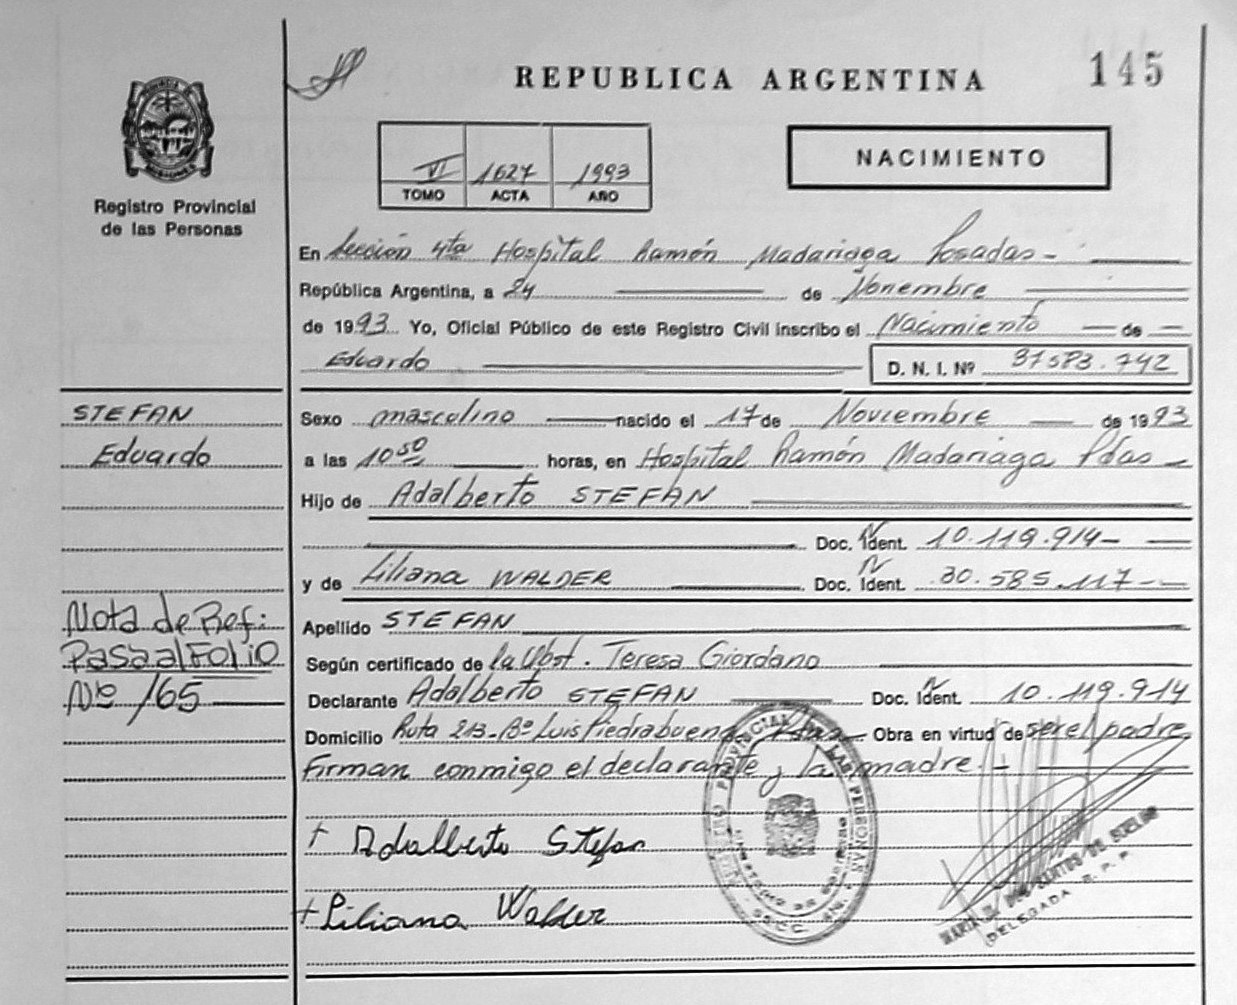 145
REPUBLICA ARGENTINA
NACIMIENTO
VI 1627 1993
TOMO ACTA AÑO
Registro Provincial
de las Personas
En Sección 4ta Hospital Ramón Madariaga Posadas -
República Argentina, a 24 de Noviembre
de 1993 Yo, Oficial Público de este Registro Civil inscribo el Nacimiento de
Eduardo D. N. I. Nº 37583.742
STEFAN
Eduardo
Nota de Ref:
Pasa al Folio
Nº 165
Sexo masculino nacido el 17 de Noviembre de 1993
a las 10 50 horas, en Hospital Ramón Madariaga Pdas -
Hijo de Adalberto STEFAN
Doc. Ident. 10.119.914-
y de Liliana WALDER Doc. Ident. 30.585.117-
Apellido STEFAN
Según certificado de la Obst. Teresa Giordano
Declarante Adalberto STEFAN Doc. Ident. 10.119.914
Domicilio Ruta 213-Bº Luis Piedrabuena Obra en virtud de ser el padre
Firman conmigo el declarante y la madre.-
+ Adalberto Stefan
+ Liliana Walder
REGISTRO PROVINCIAL DE LAS PERSONAS
DELEGADA R.P.P